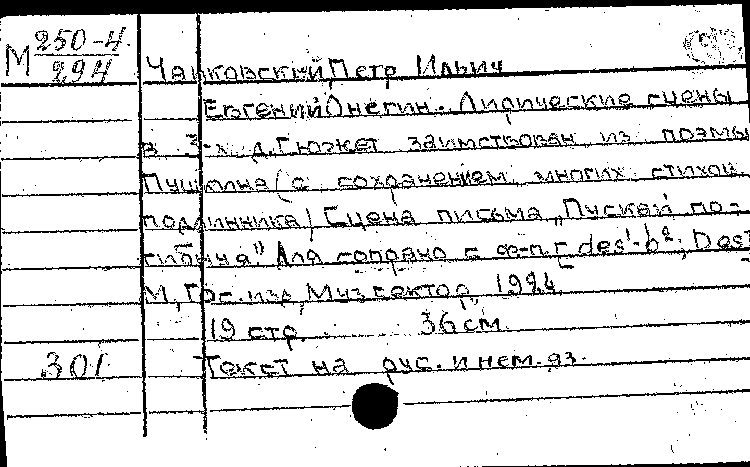 М 250-4
294
Чайковский, Петр Ильич
Евгений Онегин. Лирические сцены
в 3-х д. Сюжет заимствован из поэмы
Пушкина (с сохранением многих стихов
подлинника) Сцена письма „Пускай по-
гибну." Для сопрано с ф-п. [des¹-b²; Des
М, Гос. изд, Муз сектор, 1924
19 стр. 36 см.
301 Текст на рус. и нем. яз.